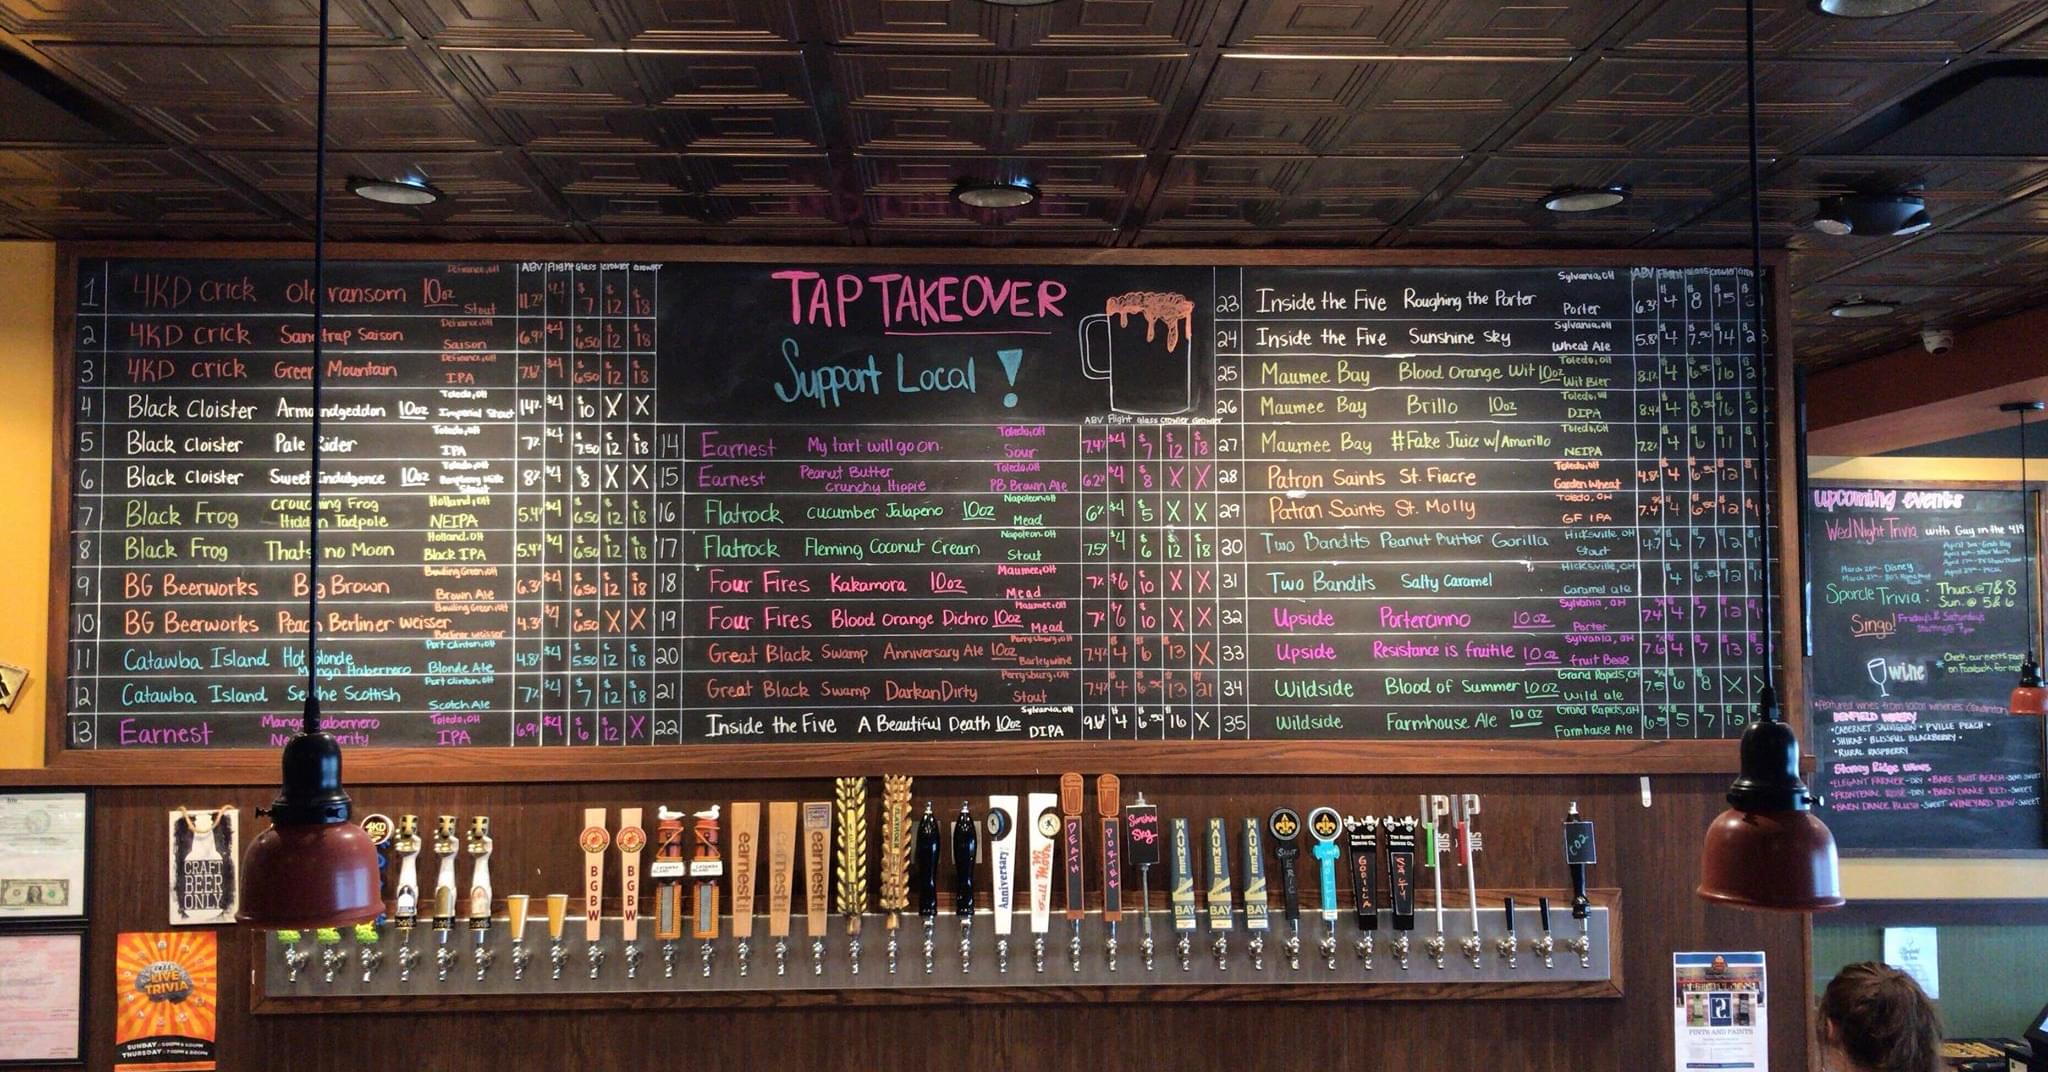 Defiance, OH ABV Flight Glass Crowler Growler
1 4KD Crick Old ransom 10oz Stout 11.2% $4 $7 $12 $18
Defiance, OH
2 4KD Crick Sandtrap Saison Saison 6.9% $4 $6.50 $12 $18
Defiance, OH
3 4KD Crick Green Mountain IPA $4 $6.50 $12 $18
Toledo, OH
4 Black Cloister Armandgeddon 10oz Imperial Stout 14% $4 $10 X X
Toledo, OH
5 Black Cloister Pale Rider IPA 7% $4 $7.50 $12 $18
Toledo, OH
6 Black Cloister Sweet Indulgence 10oz Raspberry Milk Stout 8% $4 $8 X X
Crouching Frog Holland, OH
7 Black Frog Hidden Tadpole NEIPA 5.4% $4 $6.50 $12 $18
Holland, OH
8 Black Frog Thats no Moon Black IPA 5.4% $4 $6.50 $12 $18
Bowling Green, OH
9 BG Beerworks Big Brown Brown Ale 6.3% $4 $6.50 $12 $18
Bowling Green, OH
10 BG Beerworks Peach Berliner Weisser Berliner Weisser 4.3% $4 $6.50 X X
Port Clinton, OH
11 Catawba Island Hot Blonde Mango Habernero Blonde Ale 4.8% $4 $5.50 $12 $18
Port Clinton, OH
12 Catawba Island Scottish Scotch Ale 7% $4 $7 $12 $18
Mango Habernero Toledo, OH
13 Earnest IPA 6.9% $4 $6 $12 X
TAP TAKEOVER
Support Local!
ABV Flight Glass Crowler Growler
Toledo, OH
14 Earnest My tart will go on. Sour 7.4% $4 $7 $12 $18
Peanut Butter Toledo, OH
15 Earnest Crunchy Hippie PB Brown Ale 6.2% $4 $8 X X
Napoleon, OH
16 Flatrock Cucumber Jalapeno 10oz Mead 6% $4 $5 X X
Napoleon, OH
17 Flatrock Fleming Coconut Cream Stout 7.5% $4 $6 $12 $18
Maumee, OH
18 Four Fires Kakamora 10oz Mead 7% $6 $10 X X
Maumee, OH
19 Four Fires Blood Orange Dichro 10oz Mead 7% $6 $10 X X
Perrysburg, OH
20 Great Black Swamp Anniversary Ale 10oz Barleywine 7.4% $4 $6 $13 X
Perrysburg, OH
21 Great Black Swamp Darkan Dirty Stout 7.4% $4 $6.50 $13 $21
Sylvania, OH
22 Inside the Five A Beautiful Death 10oz DIPA 9.6% $4 $6.50 $16 X
Sylvania, OH ABV Flight Glass Crowler
23 Inside the Five Roughing the Porter Porter 6.3% $4 $8 $15
Sylvania, OH
24 Inside the Five Sunshine Sky Wheat Ale 5.8% $4 $7.50 $14
Toledo, OH
25 Maumee Bay Blood Orange Wit 10oz Wit Bier $4 $6.50
Toledo, OH
26 Maumee Bay Brillo 10oz DIPA 8.4% $4 $8.50 $16
Toledo, OH
27 Maumee Bay #Fake Juice w/Amarillo NEIPA 7.2% $4 $6 $11
Toledo, OH
28 Patron Saints St. Fiacre Garden Wheat 4.8% $4 $6.50 $12
Toledo, OH
29 Patron Saints St. Molly GF IPA 7.4% $4 $6.50 $12
Hicksville, OH
30 Two Bandits Peanut Butter Gorilla Stout 4.7 $4 $7 $12
Hicksville, OH
31 Two Bandits Salty Caramel Caramel ale $4 $6.50 $12
Sylvania, OH
32 Upside Portercinno 10oz Porter 7.4 $4 $7 $12
Sylvania, OH
33 Upside Resistance is fruitile 10oz fruit Beer 7.6 $4 $7 $13
Grand Rapids, OH
34 Wildside Blood of Summer 10oz Wild ale 7.5% $6 $8 X X
Grand Rapids, OH
35 Wildside Farmhouse Ale 10oz Farmhouse Ale 6.5% $5 $7 $12
upcoming events
Wed Night Trivia with Guy in the 419
Disney
Sporcle Trivia: Thurs. @ 7 & 8
Sun. @ 5 & 6
Singo! Fridays & Saturdays
Starting @ 7pm
wine
Check our events page
on Facebook for more
•Featured wines from local wineries
•CABERNET SAUVIGNON •PVILLE PEACH•
•SHIRAZ• BLISSFUL BLACKBERRY•
•RURAL RASPBERRY
Stoney Ridge Wines
•ELEGANT FARMER-DRY •BARE BUTT BEACH-SEMI SWEET
•FRONTENAC ROSE-DRY •BARN DANCE RED-SWEET
•BARN DANCE BLUSH-SWEET •VINEYARD DEW-SWEET
CRAFT
BEER
ONLY
LIVE
TRIVIA
SUNDAY
THURSDAY
4KD
BGBW
BGBW
CATAWBA ISLAND
CATAWBA ISLAND
earnest
earnest
earnest
Anniversary
DEATH
PORTER
Sunshine
Sky
MAUMEE BAY
MAUMEE BAY
MAUMEE BAY
SAINT ERIC
MOLLY
GORILLA
SALTY
UPSIDE
UPSIDE
CO2
PINTS AND PAINTS